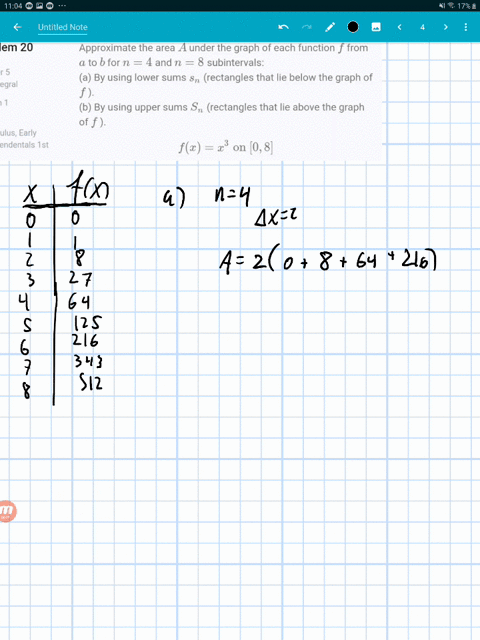 11:04 17%
Untitled Note 4
lem 20 Approximate the area A under the graph of each function f from
a to b for n = 4 and n = 8 subintervals:
r 5
(a) By using lower sums sₙ (rectangles that lie below the graph of
egral
f ).
n 1
(b) By using upper sums Sₙ (rectangles that lie above the graph
of f ).
ulus, Early
endentals 1st
f(x) = x³ on [0, 8]
x f(x)
0 0
1 1
2 8
3 27
4 64
5 125
6 216
7 343
8 512
a) n=4
Δx=2
A = 2(0 + 8 + 64 + 216)